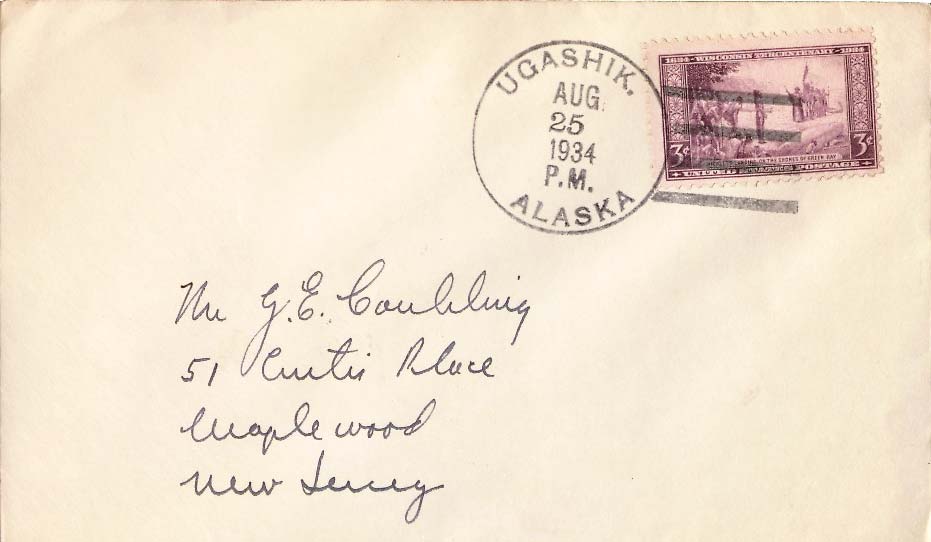 UGASHIK.
AUG.
25
1934
P.M.
ALASKA
1634-WISCONSIN TERCENTENARY-1934
3¢ 3¢
ON THE SHORES OF GREEN BAY
UNITED POSTAGE
Mr G.E.
51 Curtis Place
Maplewood
New Jersey